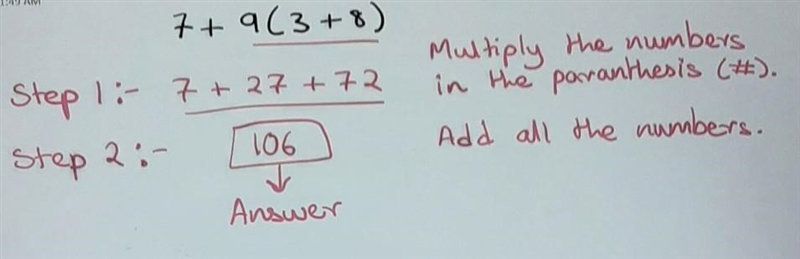 1:49 AM
7 + 9(3 + 8)
Step 1:- 7 + 27 + 72
Multiply the numbers
in the paranthesis (#).
Step 2:- 106
Add all the numbers.
Answer